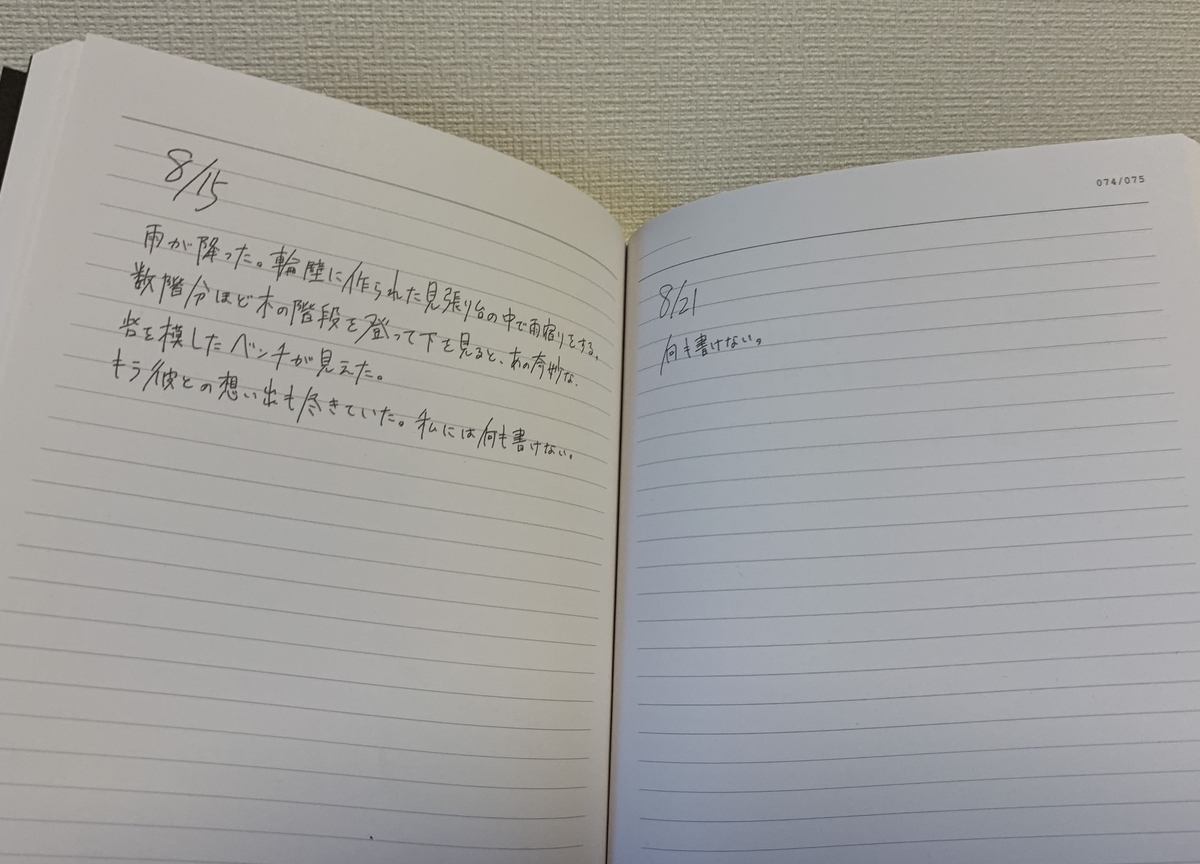 8/15
雨が降った。輪壁に作られた見張り台の中で雨宿りをする。
数階分ほど木の階段を登って下を見ると、あの奇妙な
岩を模したベンチが見えた。
もう彼との想い出も尽きていた。私には何も書けない。
074/075
8/21
何も書けない。